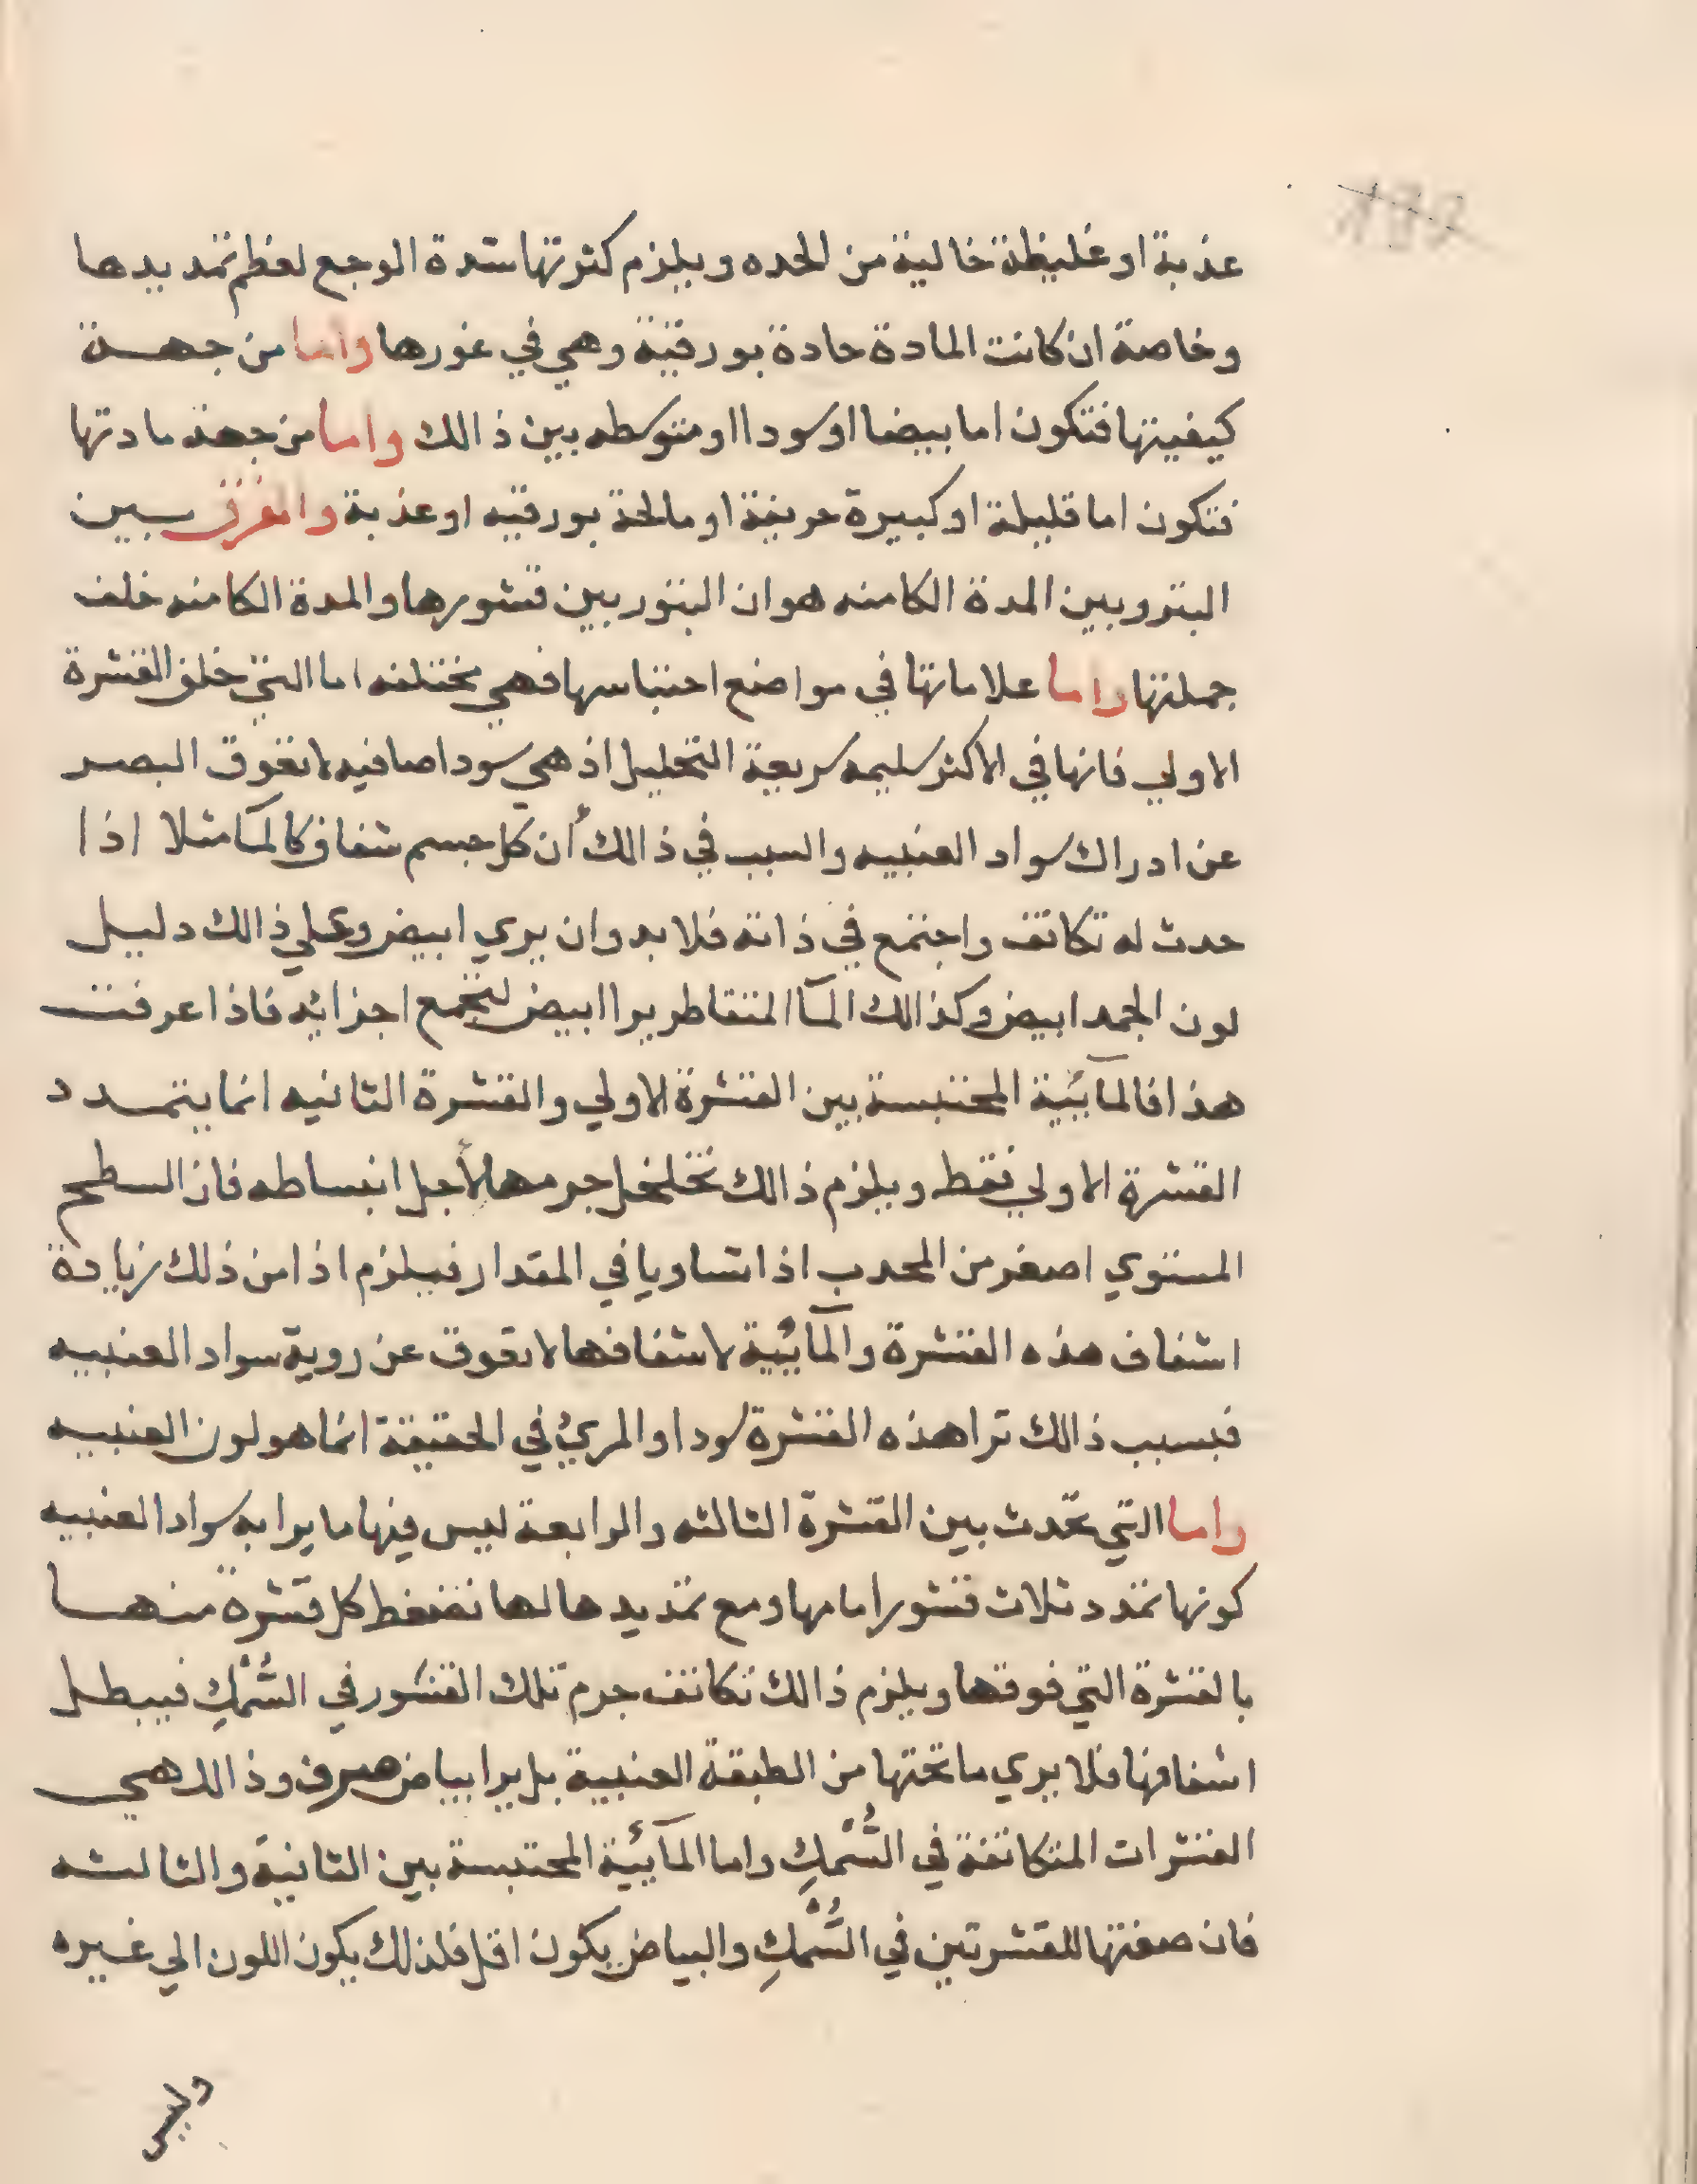 عذبة او غليظة خالية من الحده ويلزم كثرتها شدة الوجع لعظم تمديدها
وخاصة ان كانت المادة حادة بورقية وهي في غورها واما من جهة
كيفيتها فتكون اما بيضا او سودا او متوسطه بين ذالك واما من جهة مادتها
فتكون اما قليلة او كبيرة حريفة او مالحة بورقيه او عذبة والفرق بين
البثر وبين المدة الكامنه هو ان البثور بين قشورها والمدة الكامنه خلف
جملتها واما علاماتها في مواضع احتباسها فهي مختلفه اما التي خلف القشرة
الاولي فانها في الاكثر سليمه سريعة التحليل اذ هي سودا صافيه لا تعوق البصر
عن ادراك سواد العنبيه والسبب في ذالك أن كل جسم شفاف كالمآ مثلا اذا
حدث له تكاثف واجتمع في ذاته فلا بد وان يري ابيض وعلي ذالك دليل
لون الجمد ابيض وكذالك المآ المتقاطر يرا ابيض لتجمع اجزائه فاذا عرفت
هذا فالمآئية المحتبسة بين القشرة الاولي والقشرة الثانيه انما يتمدد
القشرة الاولي فقط ويلزم ذالك تخلخل جرمها لأجل انبساطه فان السطح
المستوي اصغر من المحدب اذا تساويا في المقدار فيلزم اذا من ذلك زيادة
اشفاف هذه القشرة والمآئية لاشفافها لا تعوق عن روية سواد العنبيه
فبسبب ذالك ترا هذه القشرة سودا والمريء في الحقيقة انما هو لون العنبيه
واما التي تحدث بين القشرة الثالثه والرابعة ليس فيها ما يرا به سواد العنبيه
كونها تمدد ثلاث قشور امامها ومع تمديدها لها تضغط كل قشرة منها
بالقشرة التي فوقها ويلزم ذالك تكاثف جرم تلك القشور في السُّمْكِ فيبطل
اشفافها فلا يري ما تحتها من الطبقة العنبية بل يرا بياض صرف وذالك هي
القشرات المتكاثفة في السُّمْكِ واما المآئية المحتبسة بين الثانية والثالثه
فان صفتها للقشرتين في السُّمْكِ والبياض يكون اقل فلذلك يكون اللون الي غيره